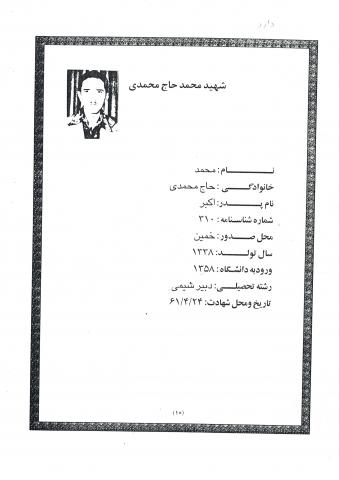 دارد
شهید محمد حاج محمدی
نــــام: محمد
خانوادگــی: حاج محمدی
نام پــدر: اکبر
شماره شناسنامه: ۳۱۰
محل صدور: خمین
سال تولــد: ۱۳۳۸
ورود به دانشگاه: ۱۳۵۸
رشته تحصیلــی: دبیر شیمی
تاریخ ومحل شهادت: ۶۱/۴/۲۴
(۱۵)